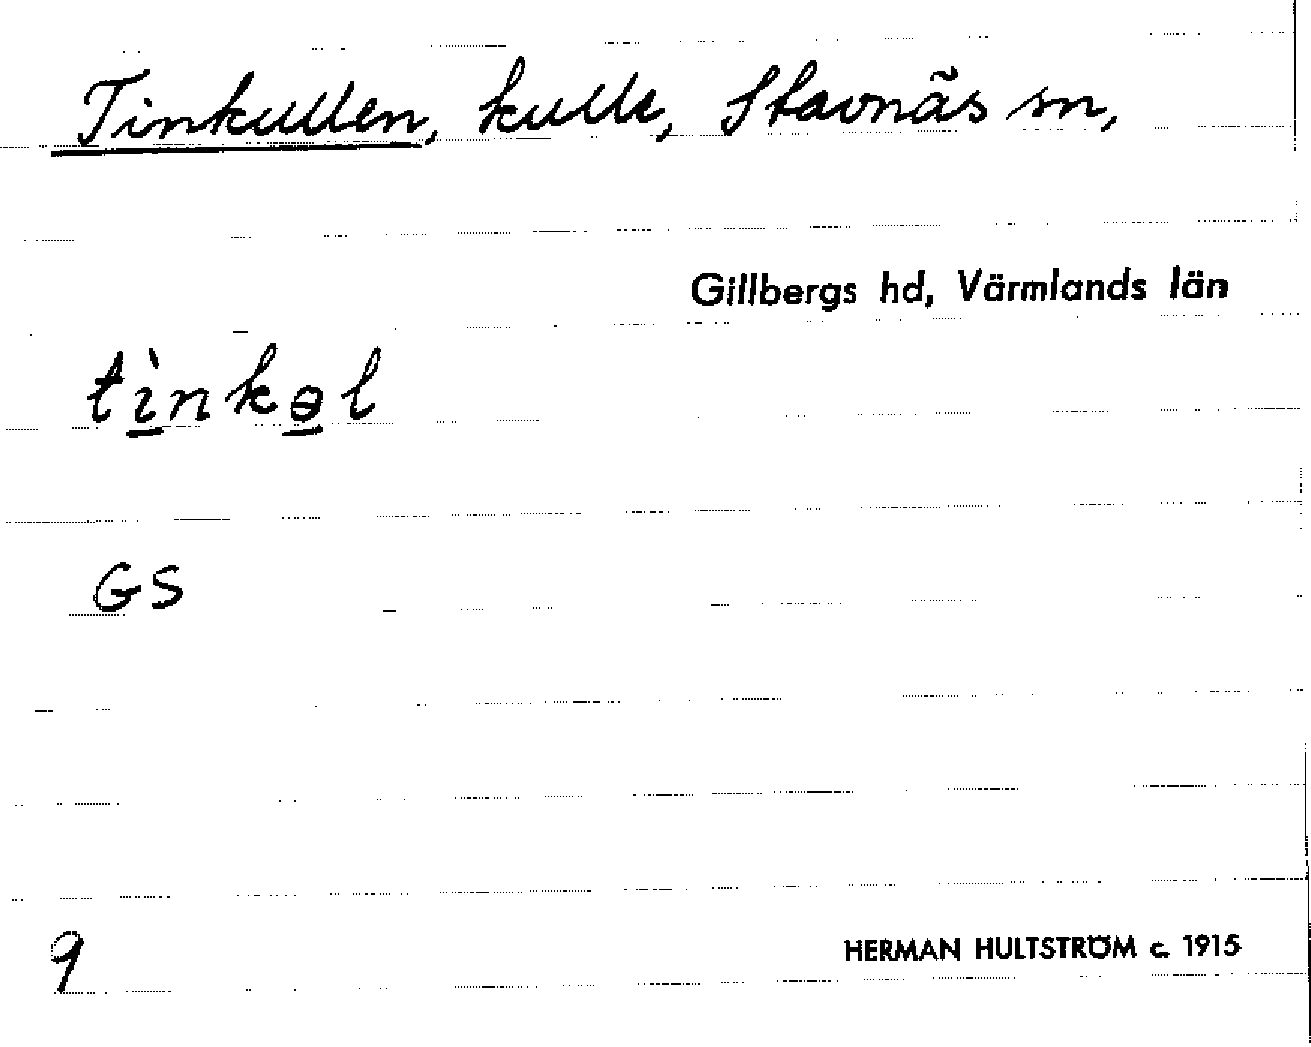 Tinkullen, kulle, Stavnäs sn,
Gillbergs hd, Värmlands län
tìnkɵl
GS
9
HERMAN HULTSTRÖM c. 1915